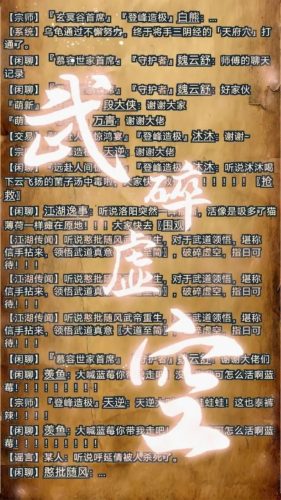 【宗师】『玄冥谷首席』『登峰造极』白熊：…
【系统】乌龟通过不懈努力，终于将手三阴经的「天府穴」打通了。
【闲聊】『慕容世家首席』『守护者』魏云舒：师傅的聊天记录
【闲聊】『慕容世家首席』『守护者』魏云舒：好家伙
『萌新』段大侠：谢谢大家
『萌新』万青：谢谢大佬
【交易】人惊鸿宴』『登峰造极』沐沐：谢谢~
【宗师】天逆：谢谢大佬
【闲聊】『远赴人间『登峰造极』沐沐：听说沐沐喝下云飞扬的蒿子汤中毒啦，大家快！！！！！！！【抢救】
【闲聊】江湖逸事：听说洛阳突然，活像是吸多了猫薄荷一样瘫在原地！！！大家快去【围观】
【江湖传闻】听说憨批随风重生，对于武道领悟，堪称信手拈来，领悟武道真意，破碎虚空，指日可待！！！
【江湖传闻】听说憨批随风武帝重生，对于武道领悟，堪称信手拈来，领悟武道真意【大道至简】，破碎虚空，指日可待！！！
【江湖传闻】听说憨批随风重生，对于武道领悟，堪称信手拈来，领悟武道真意，破碎虚空，指日可待！！！
【闲聊】『慕容世家首席』『守护者』魏云舒：谢谢大佬们
【闲聊】羡鱼：大喊蓝莓你带我走吧可怎么活啊蓝莓！！！！！！！！！
【宗师】『登峰造极』天逆：天逆蛙蛙！这也泰裤辣！！！
【闲聊】羡鱼：大喊蓝莓你可怎么活啊蓝莓！！！！！！！！！
【谣言】某人：听说呼延倩被人杀死了。
【闲聊】憨批随风：…
武碎虚空